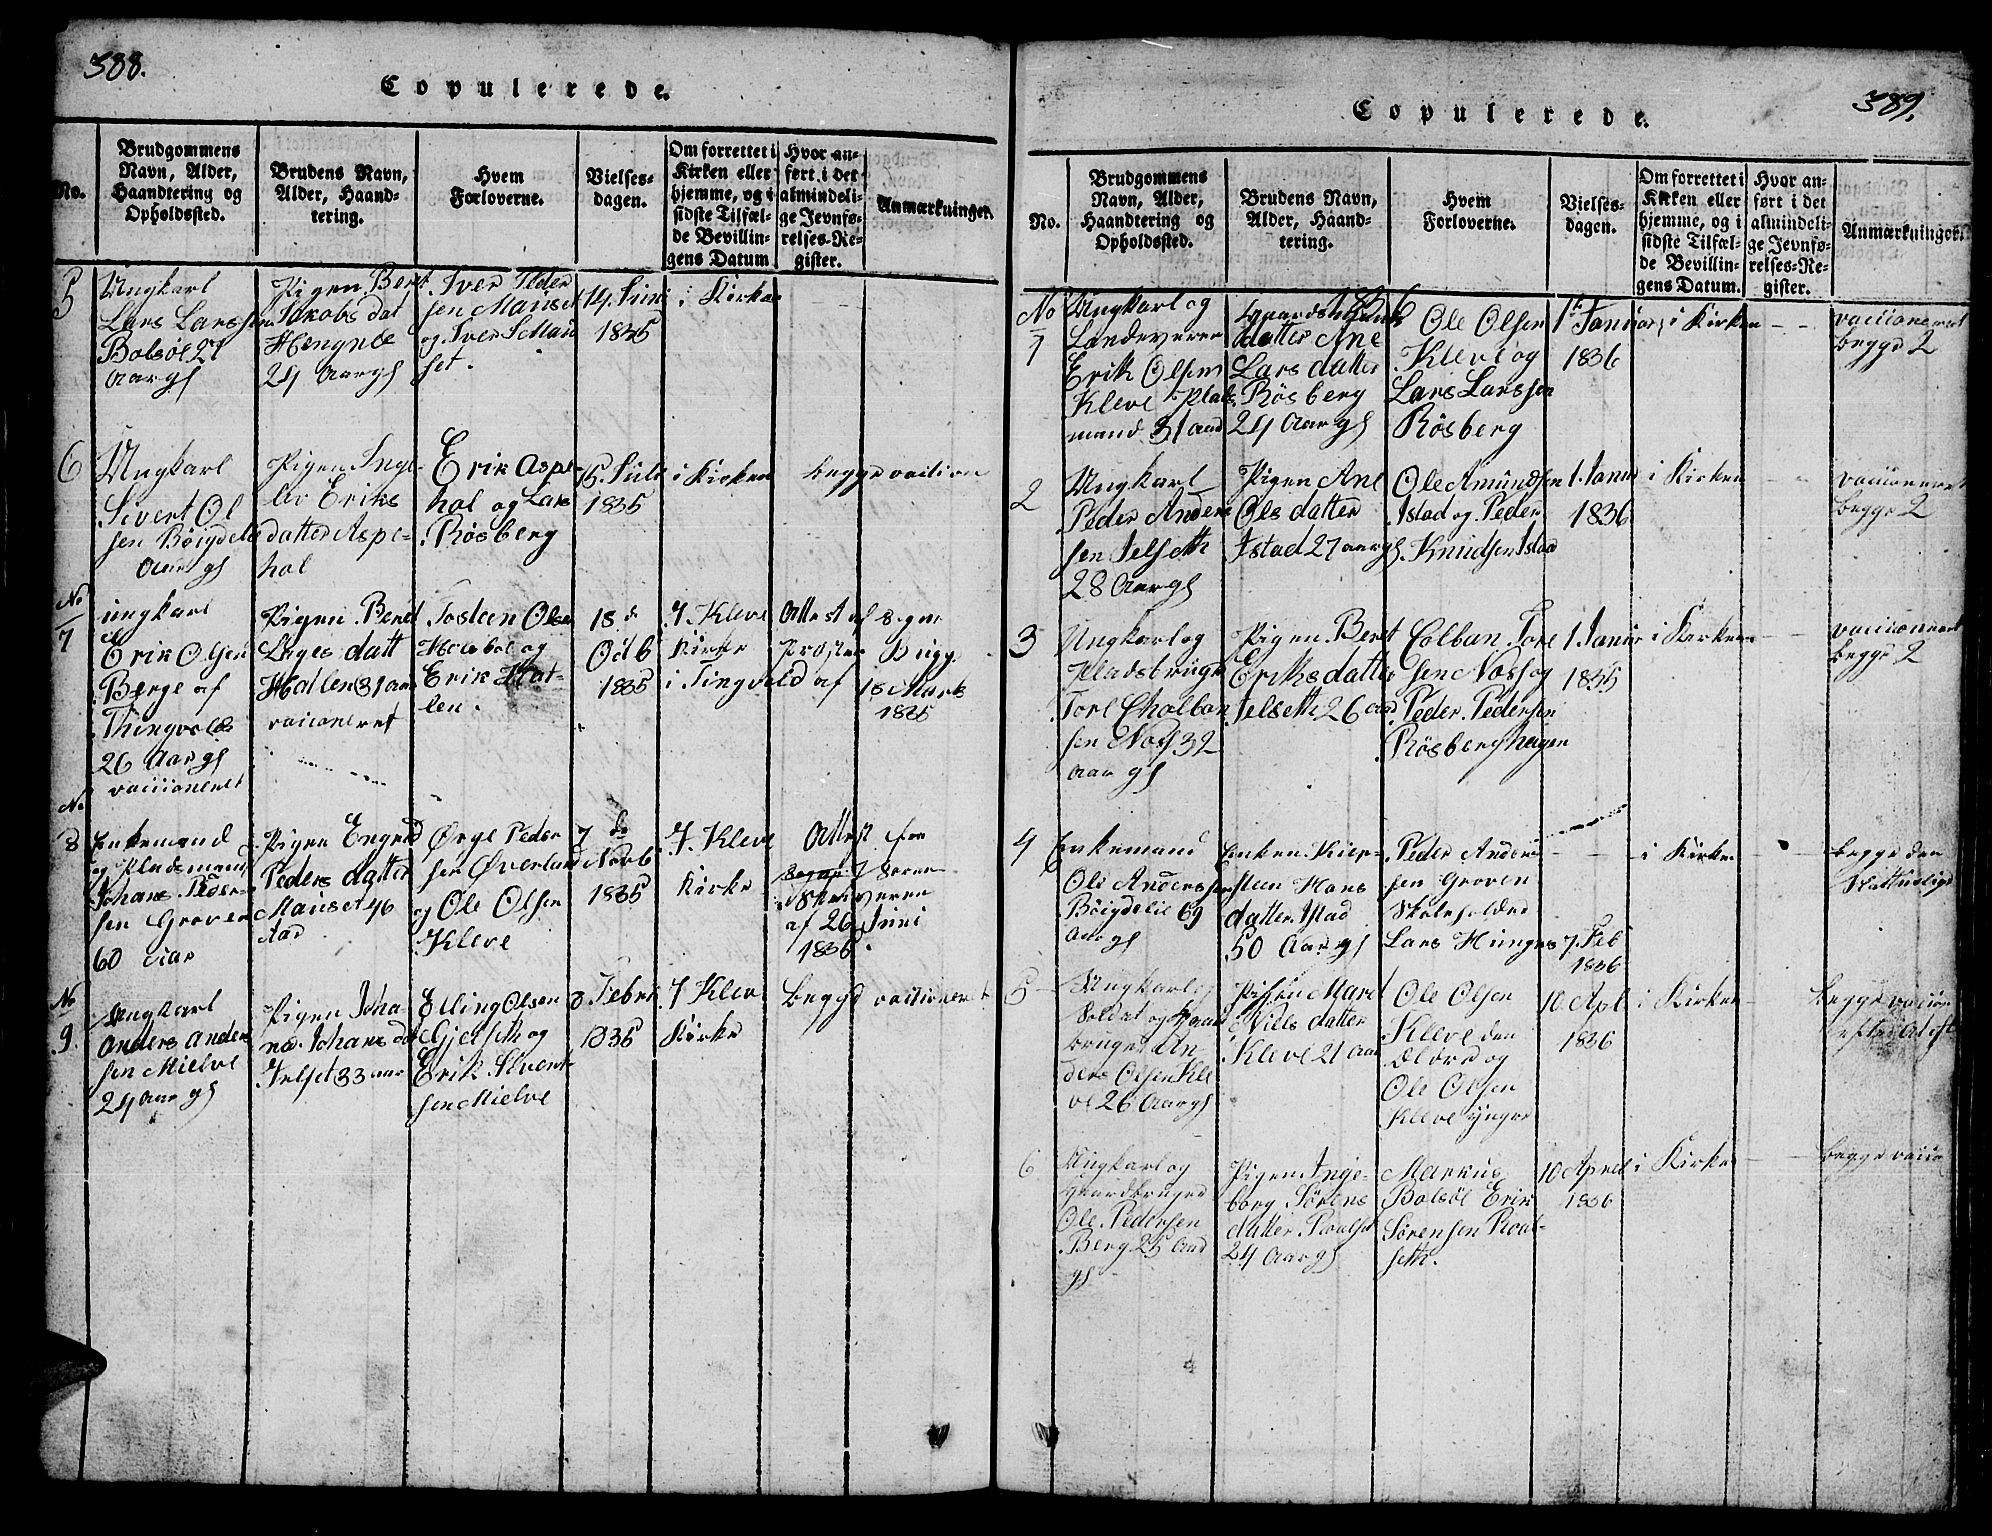 388.
Copulerede.
No.
Brudgommens
Navn, Alder,
Haandtering og
Opholdssted.
Brudens Navn,
Alder, Haand-
tering.
Hvem
Forloverne.
Vielses-
dagen.
Om forrettet i
Kirken eller
hjemme, og i
sidste Tilfæl-
de Bevillin-
gens Datum.
Hvor an-
ført i det
almindeli-
ge Jevnfø-
relses-Re-
gister.
Anmærkninger.
5
Ungkarl
Lars Larssen
Bolsøl 27
Aar gl
Pigen Berit
Jakobs dat
24 Aar gl
Iver Peder
sen Manset
og Iver Man
set.
14. Juni
1835
i Kirken
6
Ungkarl
Sivert Ol
sen Böigdelie
Aar gl
Pigen Inge-
lev Eriks
datter Aspe-
hol
Erik Aspe-
hol og Lars
Rösberg
5. Juli
1835
i Kirken
begge vaction
No
7
ungkarl
Erik Olsen
Berge af
Thingvold
26 Aar gl
vaccioneret
Pigen Beret
Lages datt
Hatlen 31 aar
vaccioneret
Tosteen Olsen
og
Erik Hat-
len.
18 d
Octb
1835
I Kleve
Kirke
i Tingvold
Attest af Sogne
prosten Bugg
af 18 Marts
1835
No
8
Enkemand
og Pladsmand
Johans Peder-
sen Groven
60 Aar
Pigen Engred
Peders datter
Manset 46
Aar
Ørge Peder
sen Øverland
og Ole Olsen
Kleve
7 de
Novb
1835
I Kleve
Kirke
Attest fra
Soren-
Skriveren
af 26 Juni
1836.
No
9.
Ungkarl
Anders Anders
sen Mielve
24 Aar gl
Pigen Joha
na Johans dat
Jelset 33 aar
Elling Olsen
Gjelseth og
Erik Sivert-
sen Mielve
8 Febr
1836
I Kleve
Kirke
Begge vactioneret
389.
Copulerede.
No.
Brudgommens
Navn, Alder,
Haandtering og
Opholdssted.
Brudens Navn,
Alder, Haand-
tering.
Hvem
Forloverne.
Vielses-
dagen.
Om forrettet i
Kirken eller
hjemme, og i
sidste Tilfæl-
de Bevillin-
gens Datum.
Hvor an-
ført i det
almindeli-
ge Jevnfø-
relses-Re-
gister.
Anmærkninger.
1836
No
1
Ungkarl og
Landeværn
Erik Olsen
Kleve Plads
mand 31 aar
datter Ane
Lars datter
Rösberg
24 Aar gl
Ole Olsen
Kleve og
Lars Larssen
Rösberg
1te Januar
1836
i Kirken
vaccioneret
begge 2
2
Ungkarl
Peder Anders
sen Jelseth
28 Aar gl
Pigen Ane
Ols datter
Istad 27 aar gl
Ole Amundsen
Istad og Peder
Knudsen Istad
1. Janu
1836
i Kirken
vaccioneret
begge 2
3
Ungkarl og
Pladsbruger
Tore Cholban
sen Nos 32
Aar gl
Pigen Berit
Eriksdatter
Jelseth 26 aar
Colban Tore
sen Nos og
Peder Pedersen
Rösberghagen
1. Janur
1835
i Kirken
vaccioneret
begge 2
4
Enkemand
Ole Anderssen
Böigdelie 69
Aar gl
Enken Kier-
steen Hans
datter Istad
50 Aar gl
Peder Anders
sen Groven
Skoleholder
Lars Hungnes
7. Feb
1836
i Kirken
begge den
5
Ungkarl og
Soldat og Gaard
bruger An
ders Olsen Kle
ve 26 Aar gl
Pigen Maret
Nils datter
Kleve 21 Aar
Ole Olsen
Kleve den
Eldre og
Ole Olsen
Kleve yngre
10 Apl
1836
i Kirken
begge vaccion
6
Ungkarl og
Gaardbruger
Ole Pedersen
Berg 25 Aar
gl
Pigen Inge-
borg Sörens
datter Roalset
24 Aar gl
Markus
Bolsöl Erik
Sörensen Roal-
seth.
10 Apriel
1836
i Kirken
begge vaccion